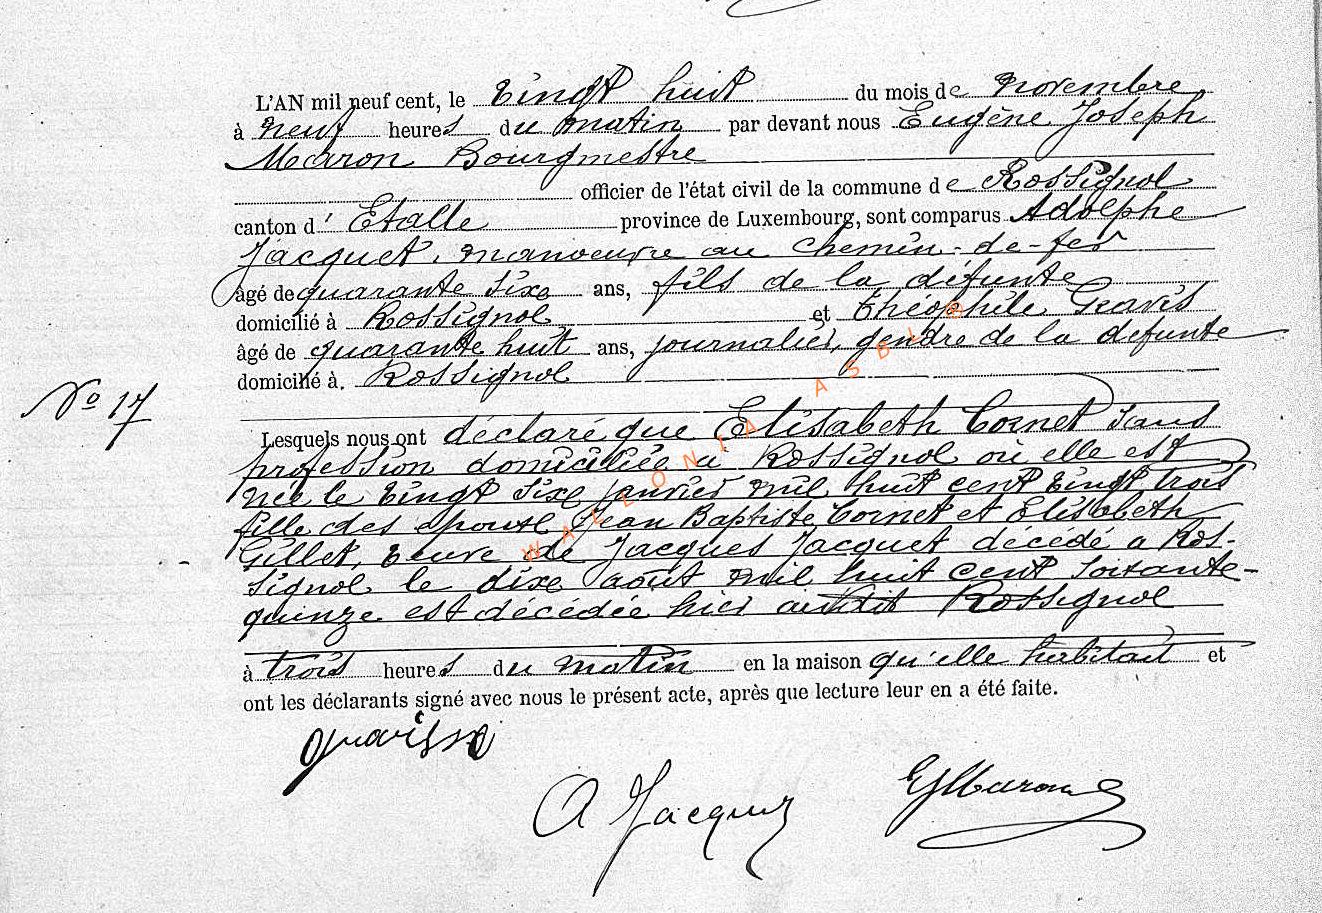 L'AN mil neuf cent, le vingt huit du mois de novembre
à neuf heures du matin par devant nous Eugène Joseph
Maron Bourgmestre
officier de l'état civil de la commune de Rossignol
canton d' Etalle province de Luxembourg, sont comparus Adolphe
Jacquet, manoeuvre au chemin-de-fer
âgé de quarante sixe ans, fils de la défunte
domicilié à Rossignol et Théophile Gravis
âgé de quarante huit ans, journalier, gendre de la defunte
domicilié à. Rossignol
No 17
Lesquels nous ont déclaré que Elisabeth Cornet sans
profession domiciliée à Rossignol où elle est
née le vingt sixe janvier mil huit cent vingt trois
fille des épouse Jean Baptiste Cornet et Elisabeth
Gillet, veuve de Jacques Jacquet décédé a Ros-
signol le dixe août mil huit cent soixante-
quinze est décédée hier audit Rossignol
à trois heures du matin en la maison qu'elle habitait et
ont les déclarants signé avec nous le présent acte, après que lecture leur en a été faite.
A Jacquet
EJMaron
WALLONIA ASBL ©